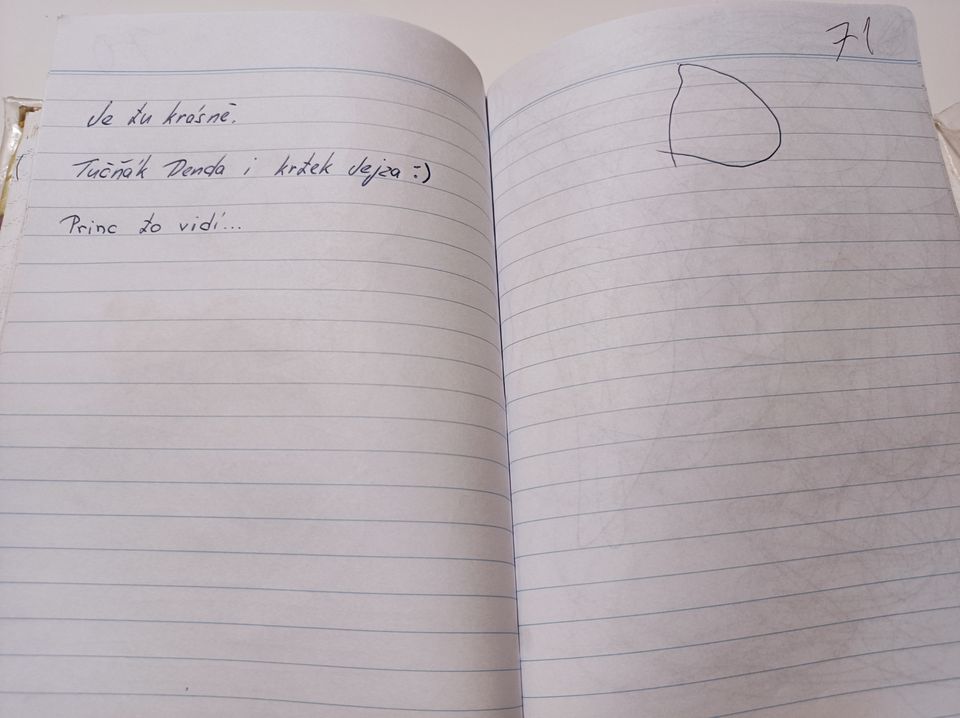 Je tu krásně.
Tučňák Denda i kržek Jejza :)
Princ to vidí...
71